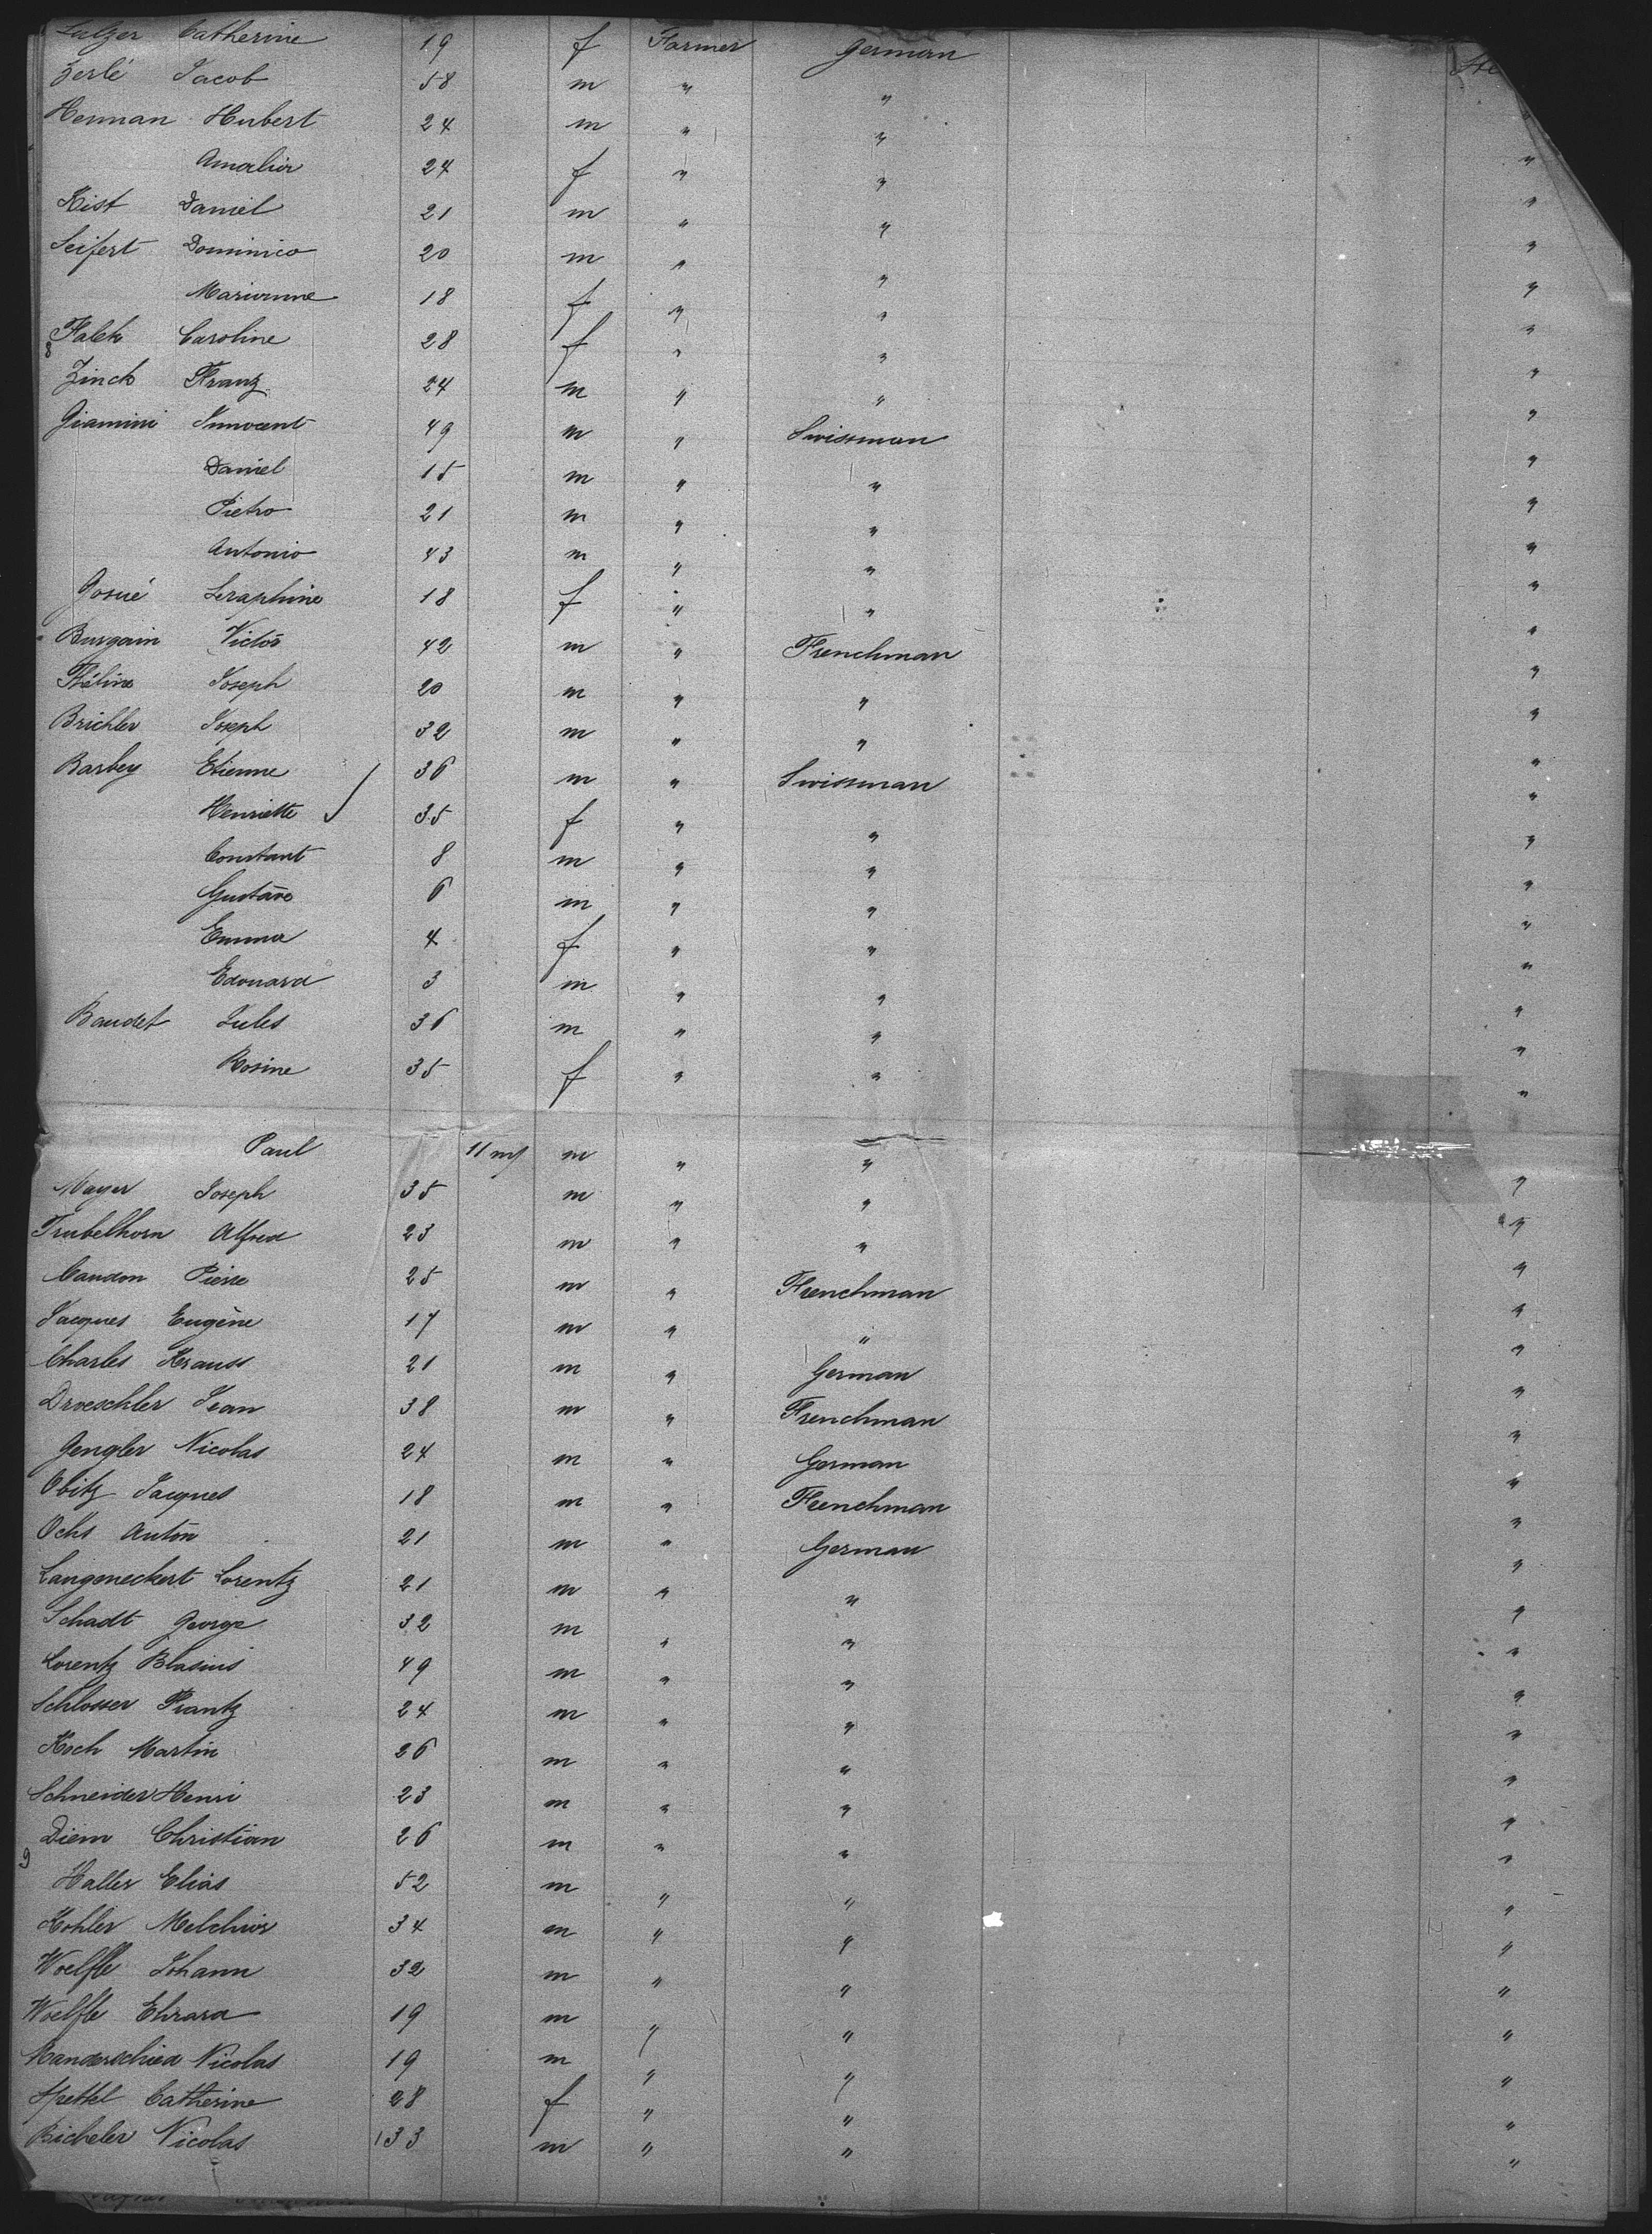 Sulzer Catherine 19 f Farmer German Ste
Zerlé Jacob 58 m " "
Herman Hubert 24 m " " "
Amalia 24 f " " "
Kist Daniel 21 m " " "
Seifert Dominico 20 m " " "
Marianne 18 f " " "
Falck Caroline 28 f " " "
8
Zinck Franz 24 m " " "
Giamini Innocent 49 m " Swissman "
Daniel 15 m " " "
Pietro 21 m " " "
Antonio 43 m " " "
Josué Seraphine 18 f " " "
Burgain Victor 42 m " Frenchman "
Théline Joseph 20 m " " "
Brichler Joseph 32 m " " "
Barbey Etienne 36 m " Swissman "
Henriette 35 f " " "
Constant 8 m " " "
Gustave 6 m " " "
Emma 4 f " " "
Edouard 3 m " " "
Baudet Jules 36 m " " "
Rosine 35 f " " "
Paul 11 m/ m " "
Mayer Joseph 35 m " " "
Trubelhorn Alfred 23 m " " "
Caudon Pierre 25 m " Frenchman "
Jacques Eugène 17 m " " "
Charles Krauss 21 m " German "
Droeschler Jean 38 m " Frenchman "
Gengler Nicolas 24 m " German "
Obitz Jacques 18 m " Frenchman "
Ochs Anton 21 m " German "
Langeneckert Lorentz 21 m " " "
Schadt George 32 m " " "
Lorentz Blasius 49 m " " "
Schlosser Frantz 24 m " " "
Koch Martin 26 m " " "
Schneider Henri 23 m " " "
Diem Christian 26 m " " "
9
Haller Elias 52 m " " "
Kohler Melchior 34 m " " "
Woelfle Johann 32 m " " "
Woelfle Ehrard 19 m " " "
Manderschied Nicolas 19 m " " "
Spettel Catherine 28 f " " "
Bicheler Nicolas 33 m " " "